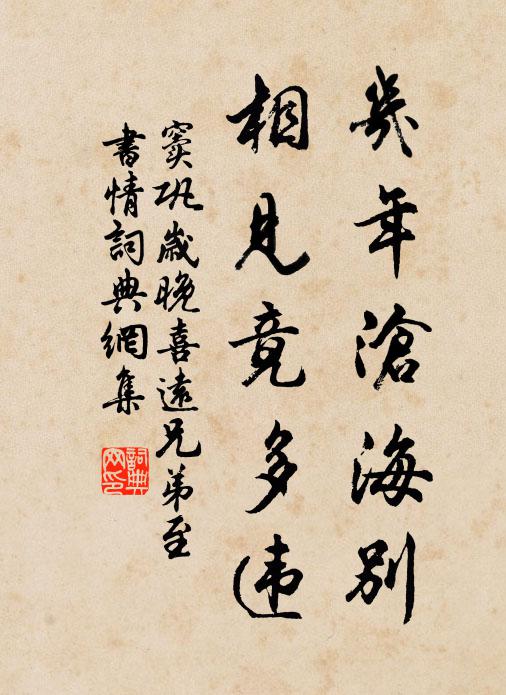 幾年滄海別
相見竟多违
窦巩歲晚喜遠兄弟至
書情詞典網集
詞典
网印